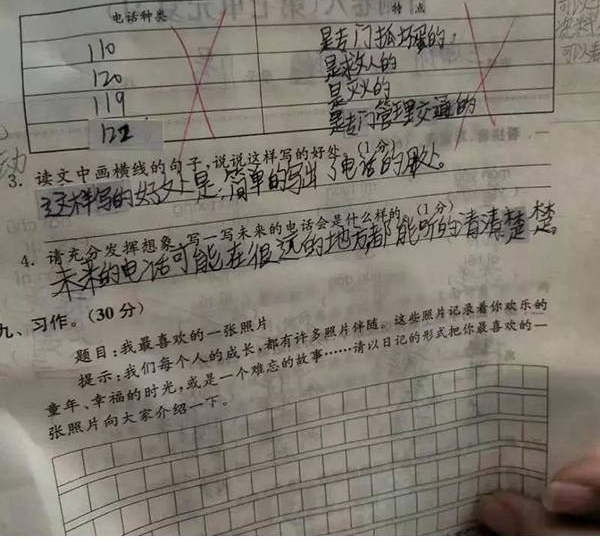 电话种类 特点
110 是专门抓坏蛋的。
120 是救人的
119 是灭火的
122 是专门管理交通的
3. 读文中画横线的句子,说说这样写的好处。(1分)
这样写的好处是:简单的写出了电话的用处。
4. 请充分发挥想象,写一写未来的电话会是什么样的。(1分)
未来的电话可能在很远的地方都能听的清清楚楚。
九、习作。(30分)
题目:我最喜欢的一张照片
提示:我们每个人的成长,都有许多照片伴随。这些照片记录着你欢乐的
童年、幸福的时光,或是一个难忘的故事……请以日记的形式把你最喜欢的一
张照片向大家介绍一下。